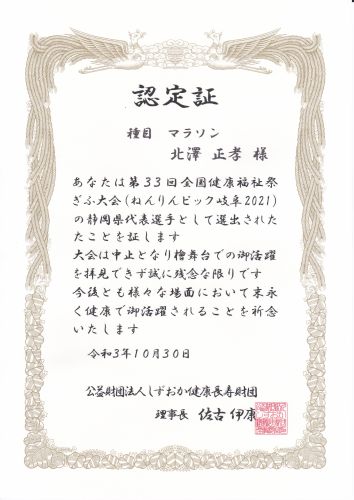 認定証
種目 マラソン
北澤 正孝 様
あなたは第33回全国健康福祉祭
ぎふ大会(ねんりんピック岐阜2021)
の静岡県代表選手として選出された
たことを証します
大会は中止となり檜舞台での御活躍
を拝見できず誠に残念な限りです
今後とも様々な場面において末永
く健康で御活躍されることを祈念
いたします
令和3年10月30日
公益財団法人しずおか健康長寿財団
理事長 佐古 伊康